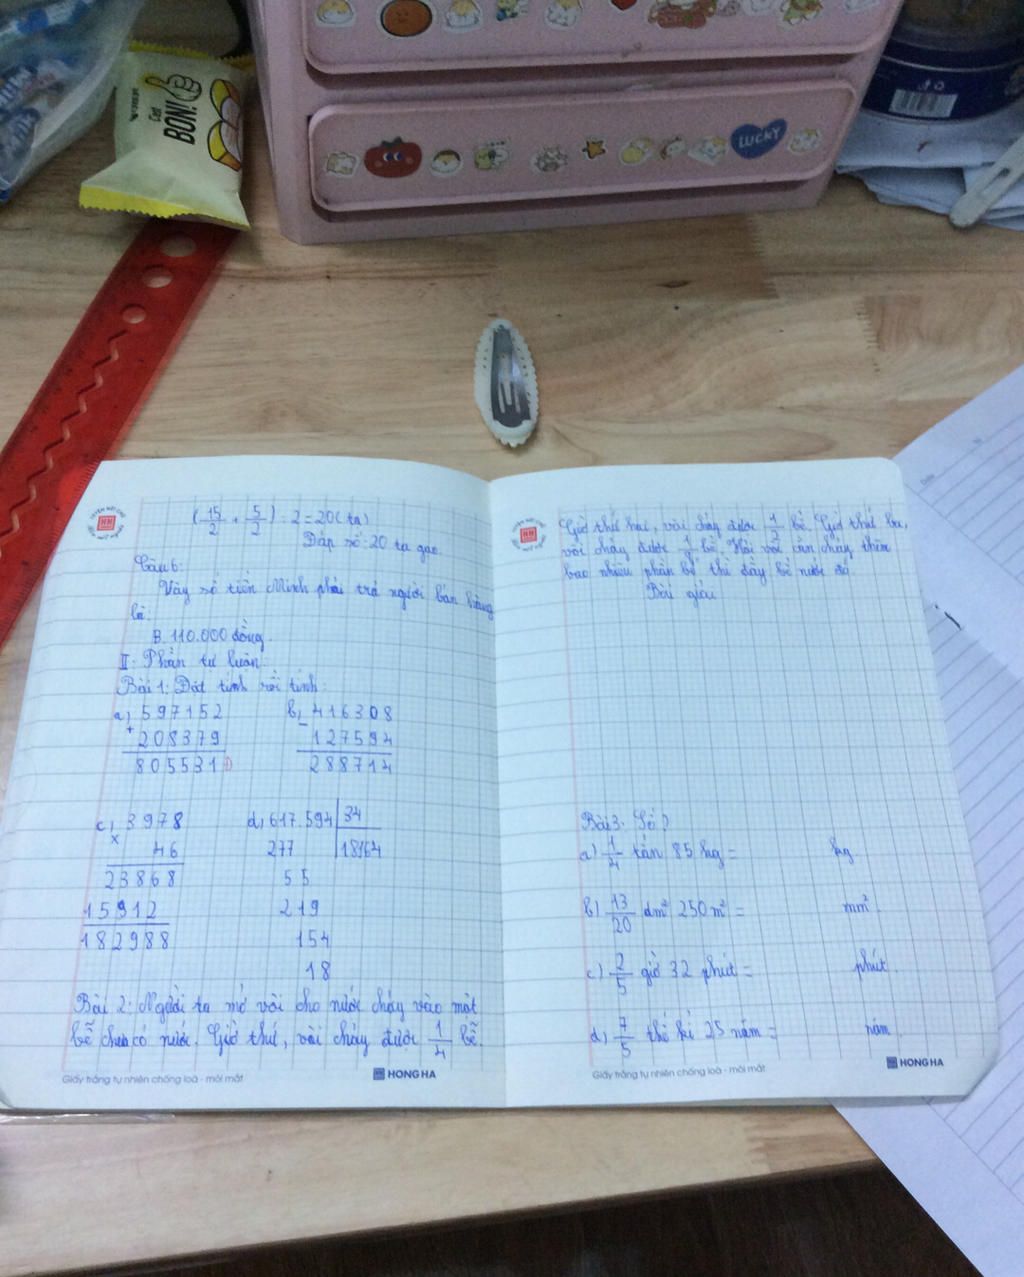 Cest
BON!
LUCKY
LUYỆN NÉT CHỮ
RÈN NẾT NGƯỜI
HH
(15/2 + 5/2) : 2 = 20 (tạ)
Đáp số: 20 tạ gạo.
Câu 6:
Vậy số tiền Minh phải trả người bán hàng
là:
B. 110.000 đồng.
II. Phần tự luận:
Bài 1: Đặt tính rồi tính:
a) 597152
+
208379
805531
b) 416308
-
127594
288714
c) 3978
x
46
23868
15912
182988
d) 617.594 34
277 18164
55
219
154
18
Bài 2: Người ta mở vòi cho nước chảy vào một
bể chưa có nước. Giờ thứ, vòi chảy được 1/4 bể.
Giấy trắng tự nhiên chống loá - mỏi mắt
HONG HA
LUYỆN NÉT CHỮ
RÈN NẾT NGƯỜI
HH
Giờ thứ hai, vòi chảy được 1/2 bể. Giờ thứ ba,
vòi chảy được bể. Hỏi vòi cần chảy thêm
bao nhiêu phần bể thì đầy bể nước đó.
Bài giải
Bài 3: Số?
a) 1/4 tấn 85 kg = kg
b) 13/20 dm² 250 m² = mm²
c) 2/5 giờ 32 phút = phút
d) 7/5 thế kỉ 25 năm = năm
Giấy trắng tự nhiên chống loá - mỏi mắt
HONG HA
Date